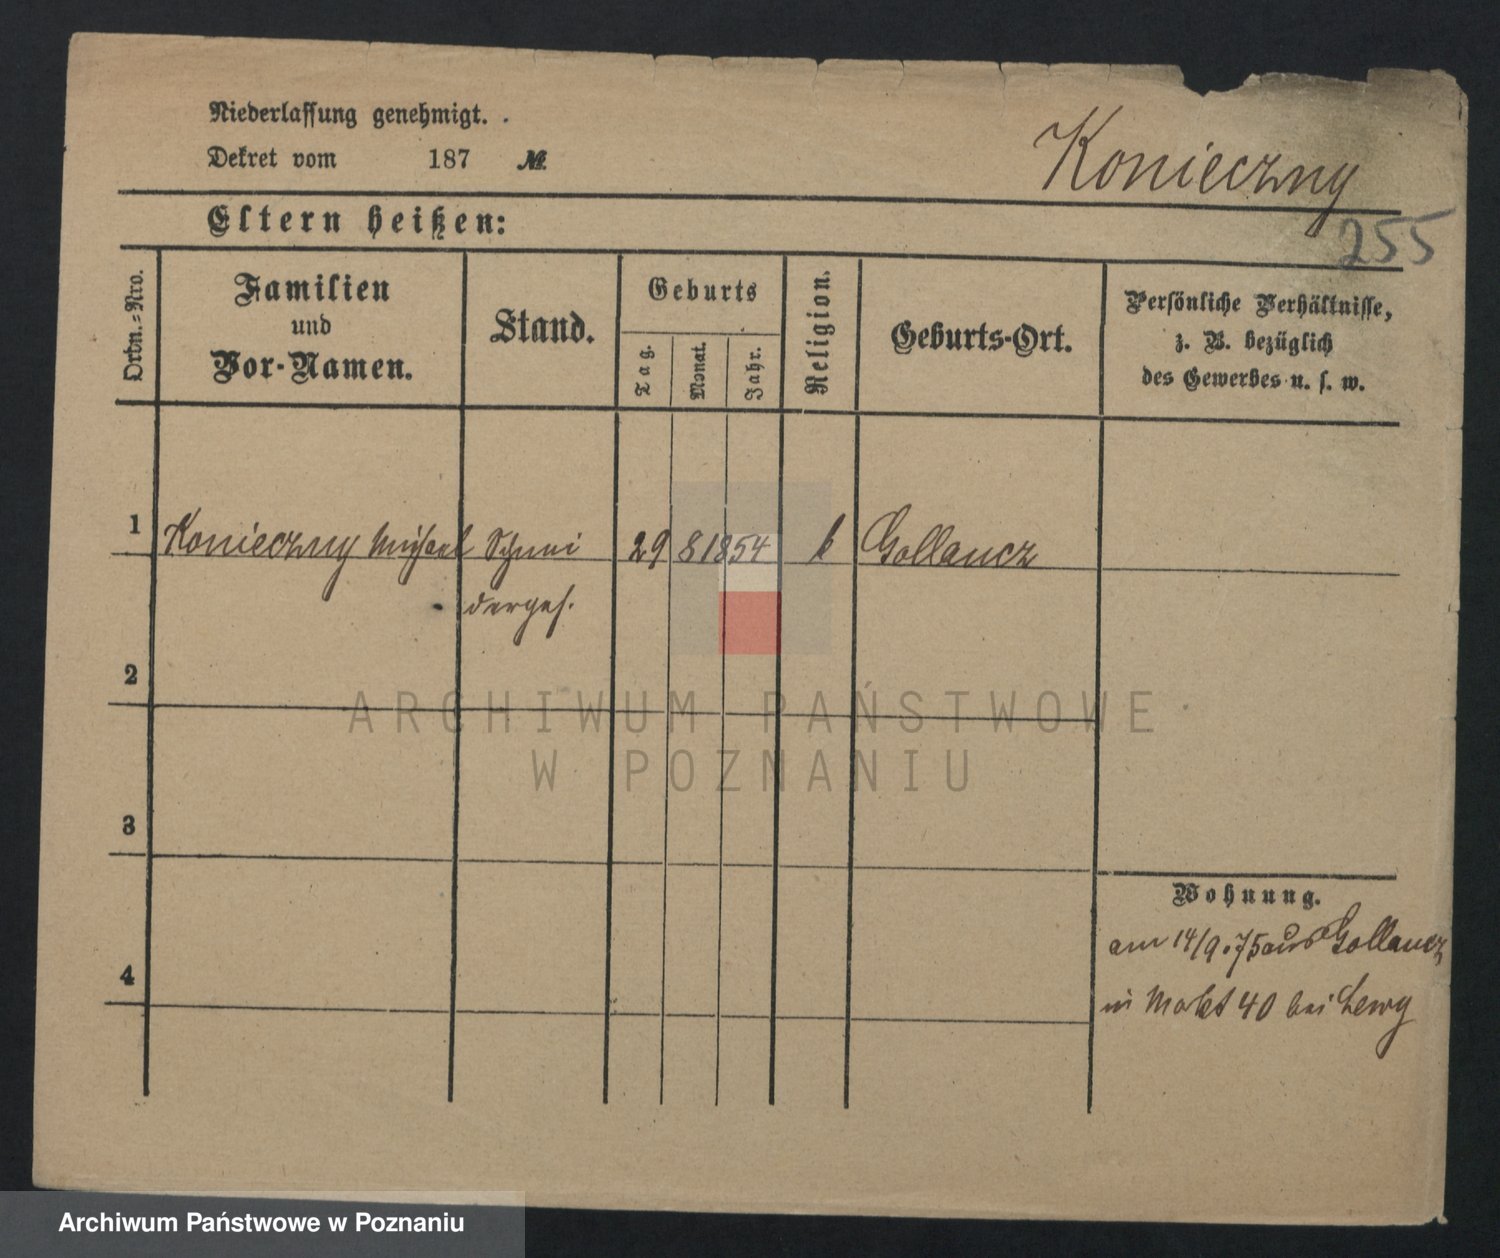 Niederlassung genehmigt.
Dekret vom 187 №
Konieczny
Eltern heißen:
255
Ordn.-Nro.
Familien
und
Vor-Namen.
Stand.
Geburts
Tag.
Monat.
Jahr.
Religion.
Geburts-Ort.
Persönliche Verhältnisse,
z. B. bezüglich
des Gewerbes u. s. w.
1 Konieczny Michael Schnei 29 8 1854 k Gollancz
derges.
2
ARCHIWUM PAŃSTWOWE
W POZNANIU
3
Wohnung.
am 14/9.75 aus Gollancz
4
in Markt 40 bei Lewy
Archiwum Państwowe w Poznaniu